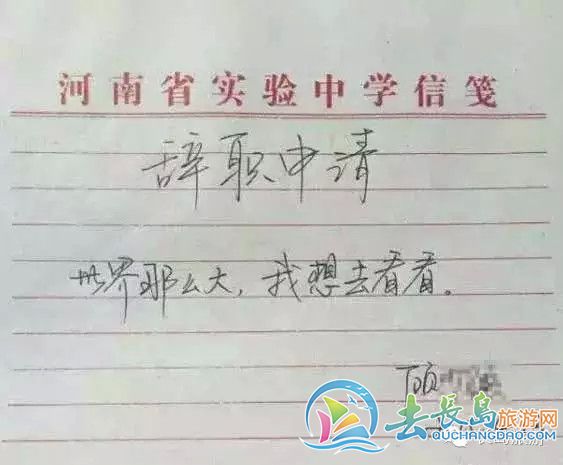 河南省实验中学信笺
辞职申请
世界那么大,我想去看看。
顾
去长岛旅游网
QUCHANGDAO.COM